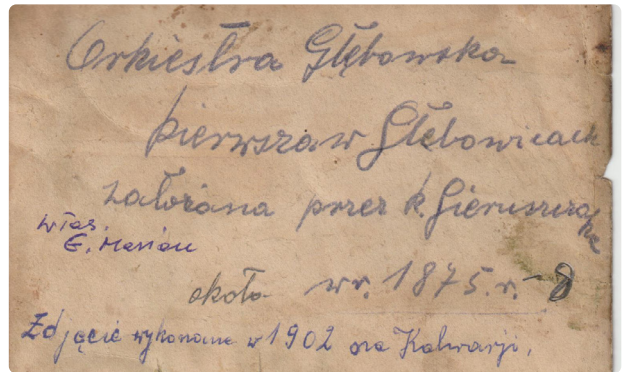 Orkiestra Głębowska
pierwsza w Głębowicach
założona przez k. Gieruszcza
włas.
E. Marian
około w r. 1875.r. - 8
Zdjęcie wykonane w 1902 na Kalwarji.